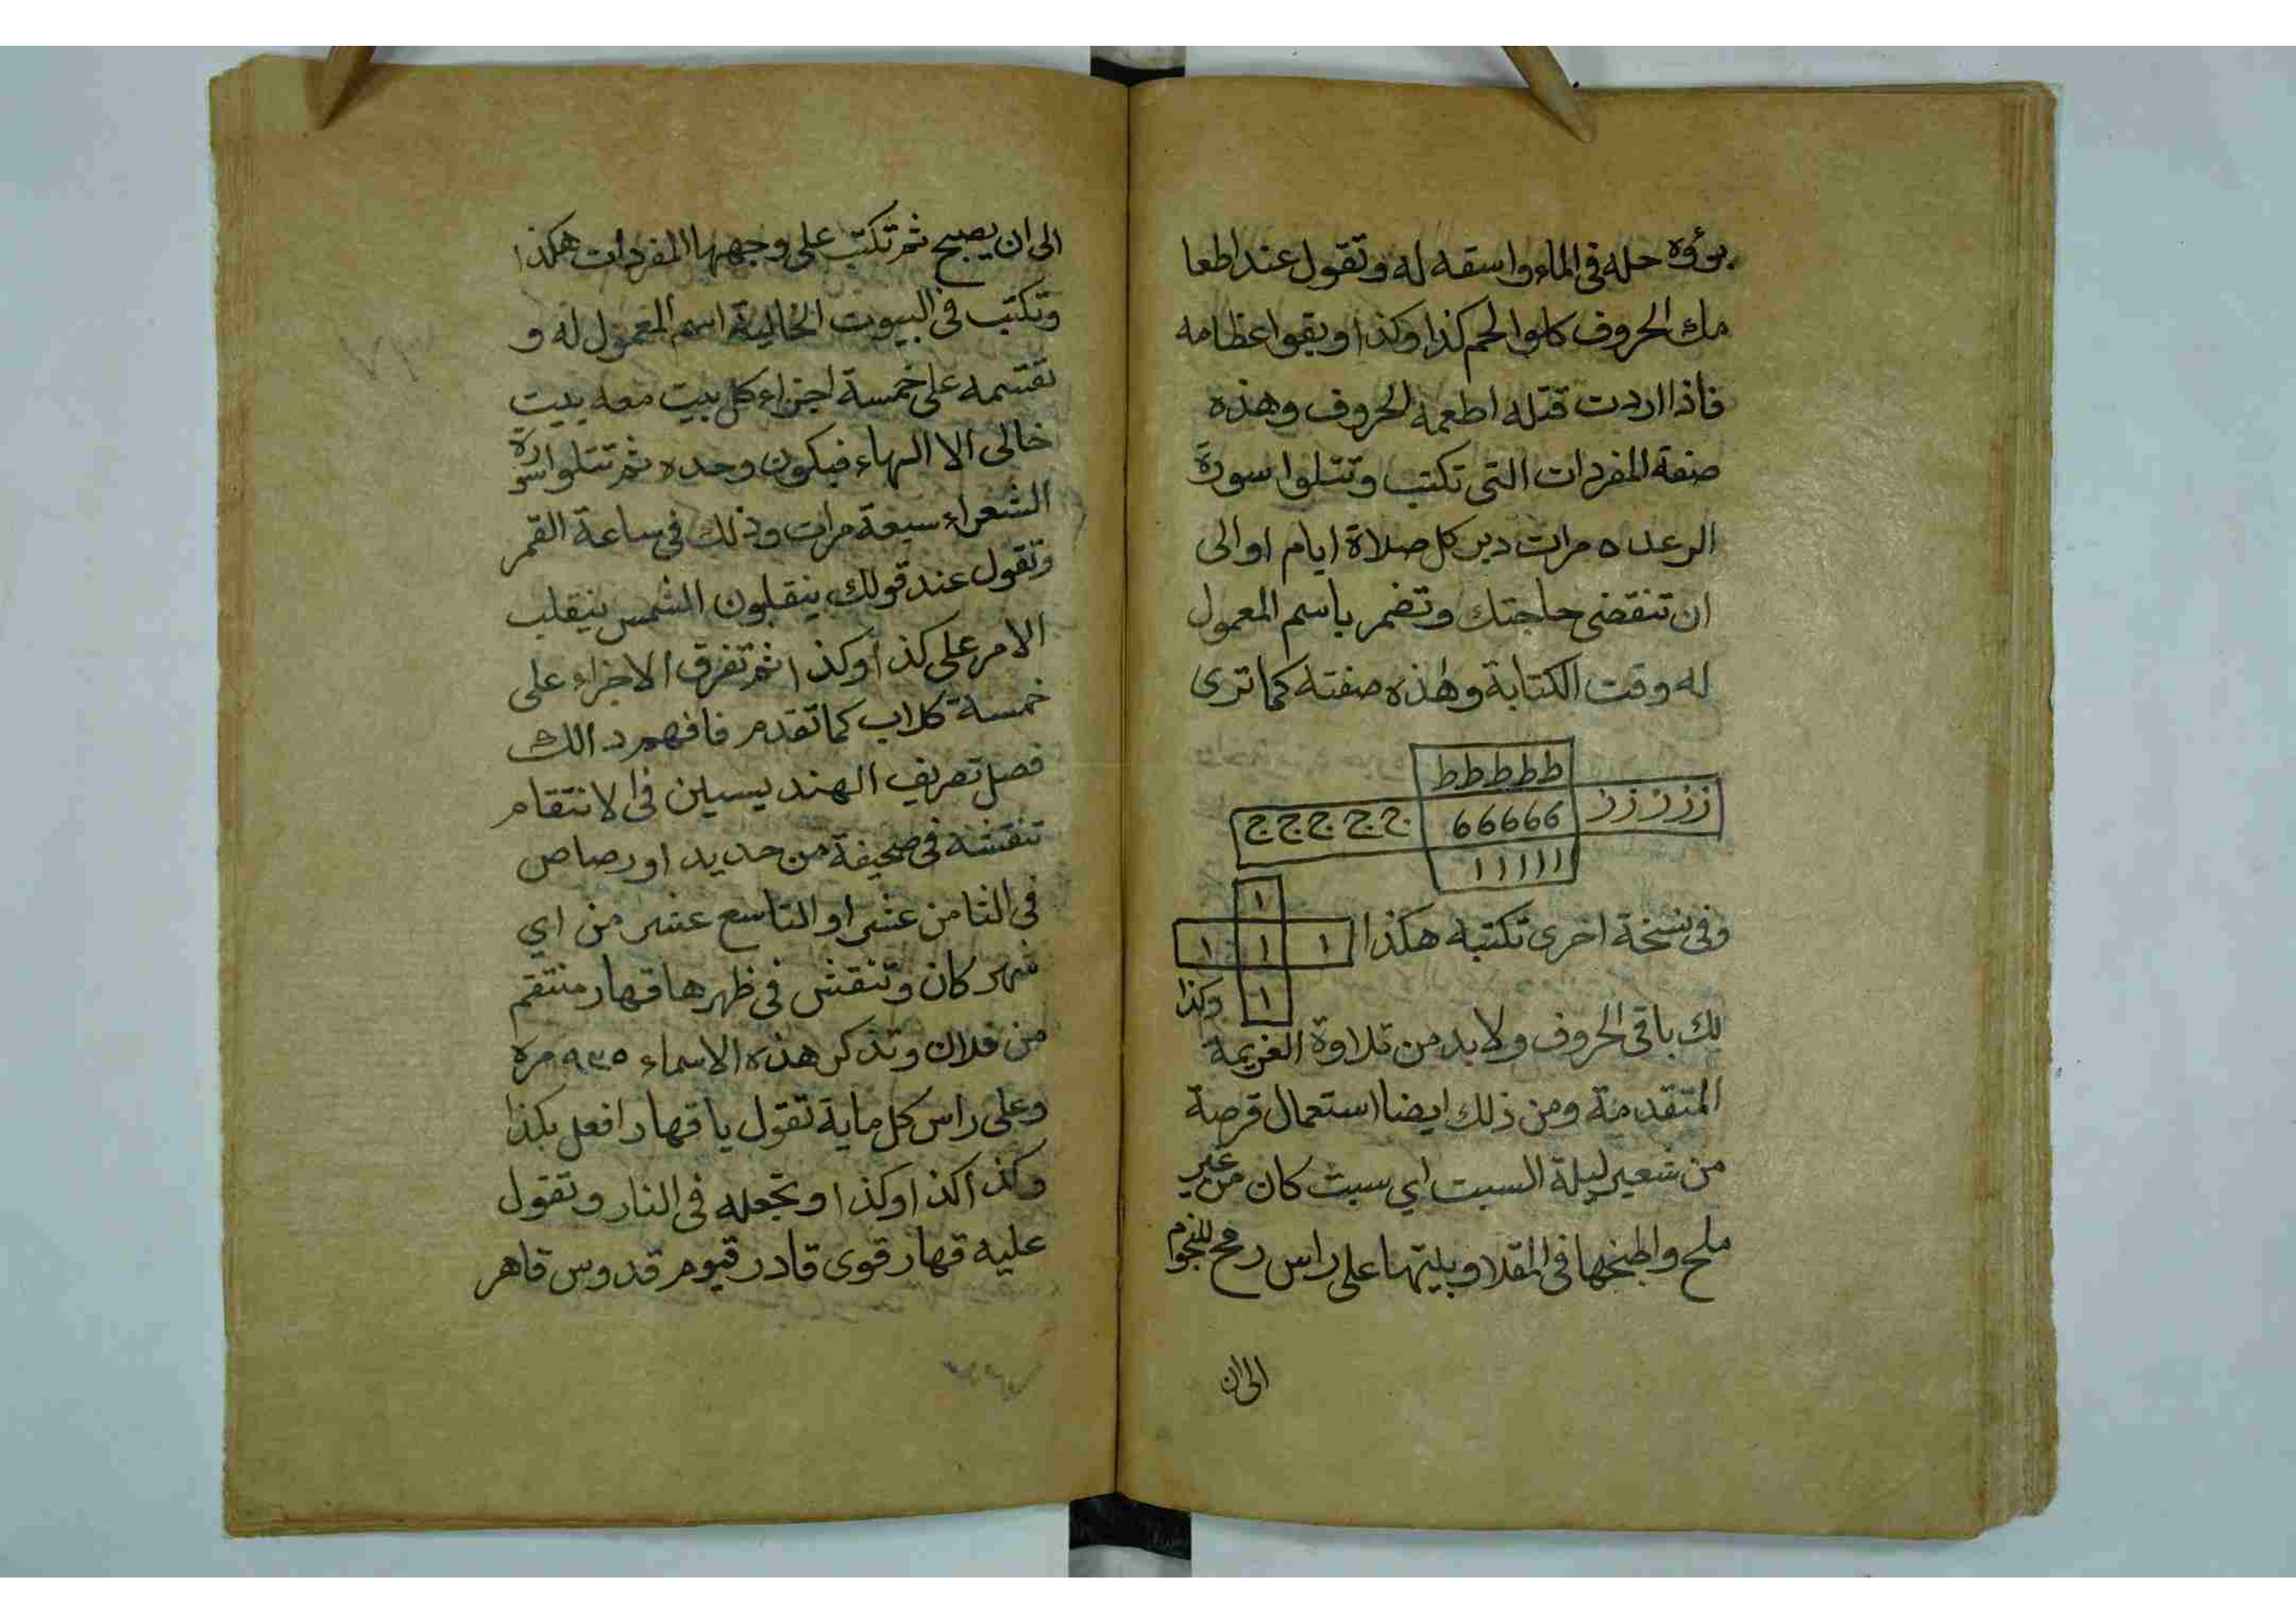 برؤه حله في الماء واسقه له وتقول عند اطعا
مك الحروف كلوا لحم كذا وكذا وبقوا عظامه
فاذا اردت قتله اطعمه الحروف وهذه
صفة المفردات التي تكتب وتتلوا سورة
الرعد ٥ مرات دبر كل صلاة ايام او الى
ان تنقضى حاجتك وتضمر باسم المعمول
له وقت الكتابة وهذه صفته كما ترى
ططططط
ززززز 66666 ججججج
ااااا
١
وفي نسخة اخرى تكتبه هكذا ١ ١ ١
١ وكذا
لك باقى الحروف ولابد من تلاوة العزيمة
المتقدمة ومن ذلك ايضا استعمال قرصة
من شعير ليلة السبت اي سبت كان من غير
ملح واطبخها في المقلا وبيتها على راس رمح للنجوم
الى ان
الى ان يصبح ثم تكتب على وجهها المفردات هكذا
وتكتب في البيوت الخالية اسم المعمول له و
تقتسمه على خمسة اجزاء كل بيت معه بيت
خالى الا الهاء فيكون وحده ثم تتلوا سورة
الشعراء سبعة مرات وذلك في ساعة القمر
وتقول عند قولك ينقلبون الشمس ينقلب
الامر على كذا وكذا ثم تفرق الاجزاء على
خمسة كلاب كما تقدم فافهم دالك
فصل تصريف الهند يسين في الانتقام
تنقشه في صحيفة من حديد او رصاص
في الثامن عشر او التاسع عشر من اي
شهر كان وتنقش في ظهرها قهار منتقم
من فلان وتذكر هذه الاسماء ٩٣٥ مرة
وعلى راس كل ماية تقول يا قهار افعل بكذا
وكذا كذا وكذا وتجعله في النار وتقول
عليه قهار قوى قادر قيوم قدوس قاهر